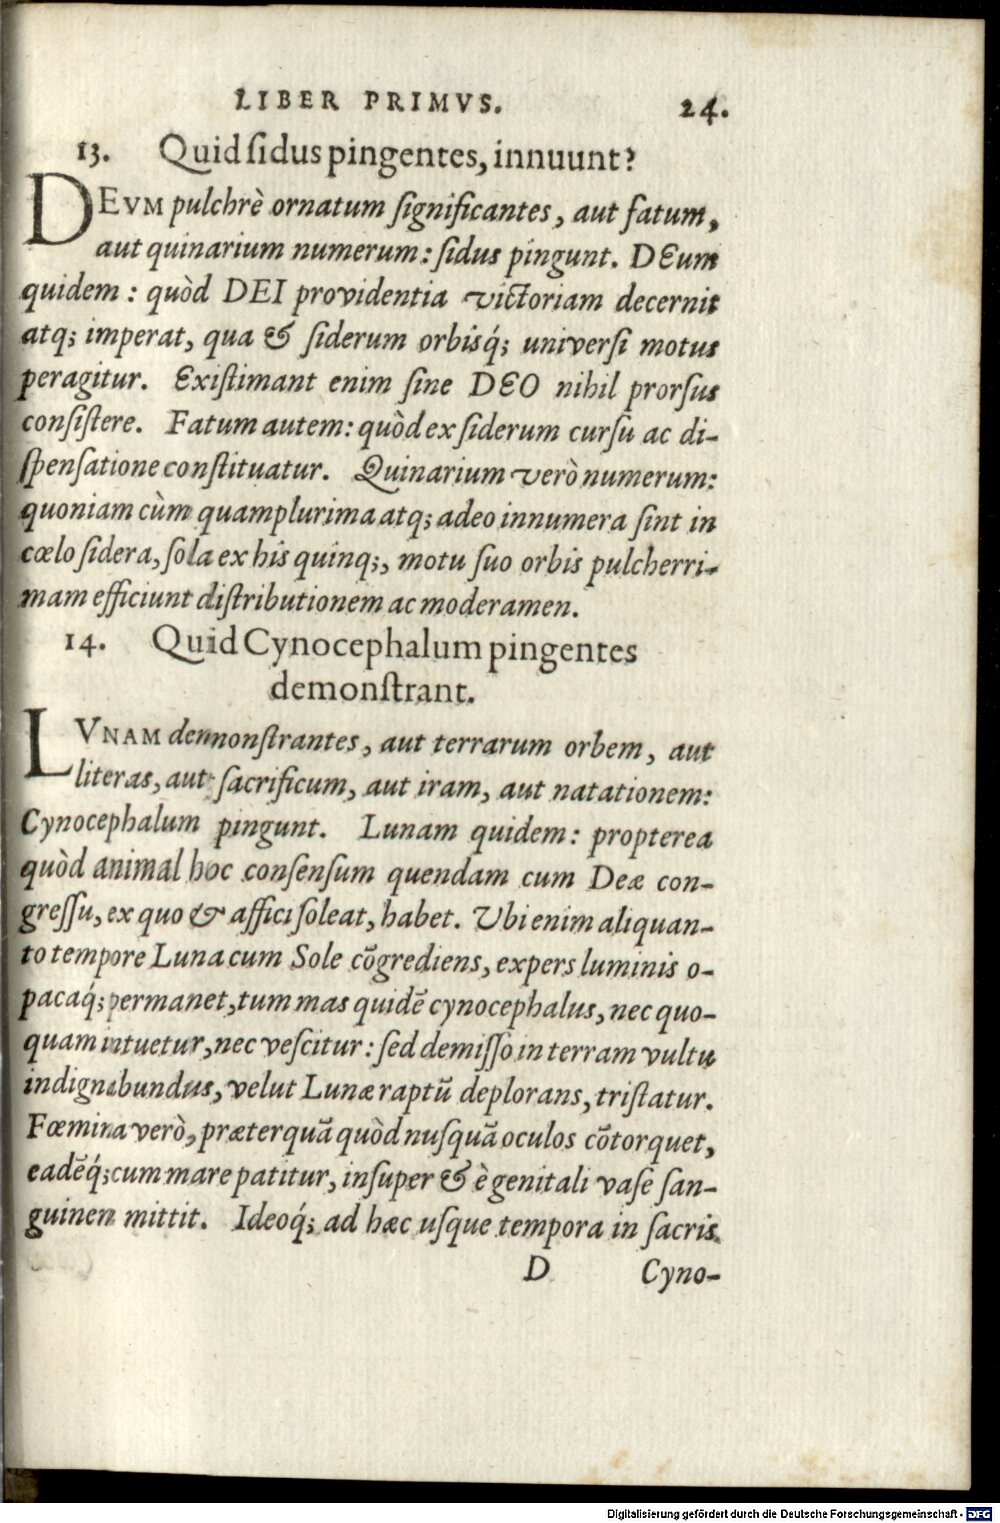 LIBER PRIMVS. 24.
13. Quid ſidus pingentes, innuunt?
DEVM pulchrè ornatum ſignificantes, aut fatum,
aut quinarium numerum: ſidus pingunt. DEum
quidem: quòd DEI providentia victoriam decernit
atq; imperat, qua & ſiderum orbisq́; univerſi motus
peragitur. Exiſtimant enim ſine DEO nihil prorſus
conſiſtere. Fatum autem: quòd ex ſiderum curſu ac di-
ſpenſatione conſtituatur. Quinarium verò numerum:
quoniam cùm quamplurima atq; adeo innumera ſint in
cœlo ſidera, ſola ex his quinq;, motu ſuo orbis pulcherri-
mam efficiunt diſtributionem ac moderamen.
14. Quid Cynocephalum pingentes
demonſtrant.
LVNAM demonſtrantes, aut terrarum orbem, aut
literas, aut ſacrificum, aut iram, aut natationem:
Cynocephalum pingunt. Lunam quidem: propterea
quòd animal hoc conſenſum quendam cum Deæ con-
greſſu, ex quo & affici ſoleat, habet. Ubi enim aliquan-
to tempore Luna cum Sole cōgrediens, expers luminis o-
pacaq́; permanet, tum mas quidē cynocephalus, nec quo-
quam intuetur, nec veſcitur: ſed demiſſo in terram vultu
indignabundus, velut Lunæ raptū deplorans, triſtatur.
Fœmina verò, præterquā quòd nuſquā oculos cōtorquet,
eadēq́; cum mare patitur, inſuper & è genitali vaſe ſan-
guinem mittit. Ideoq́; ad hæc uſque tempora in ſacris
D Cyno-
Digitalisierung gefördert durch die Deutsche Forschungsgemeinschaft - DFG